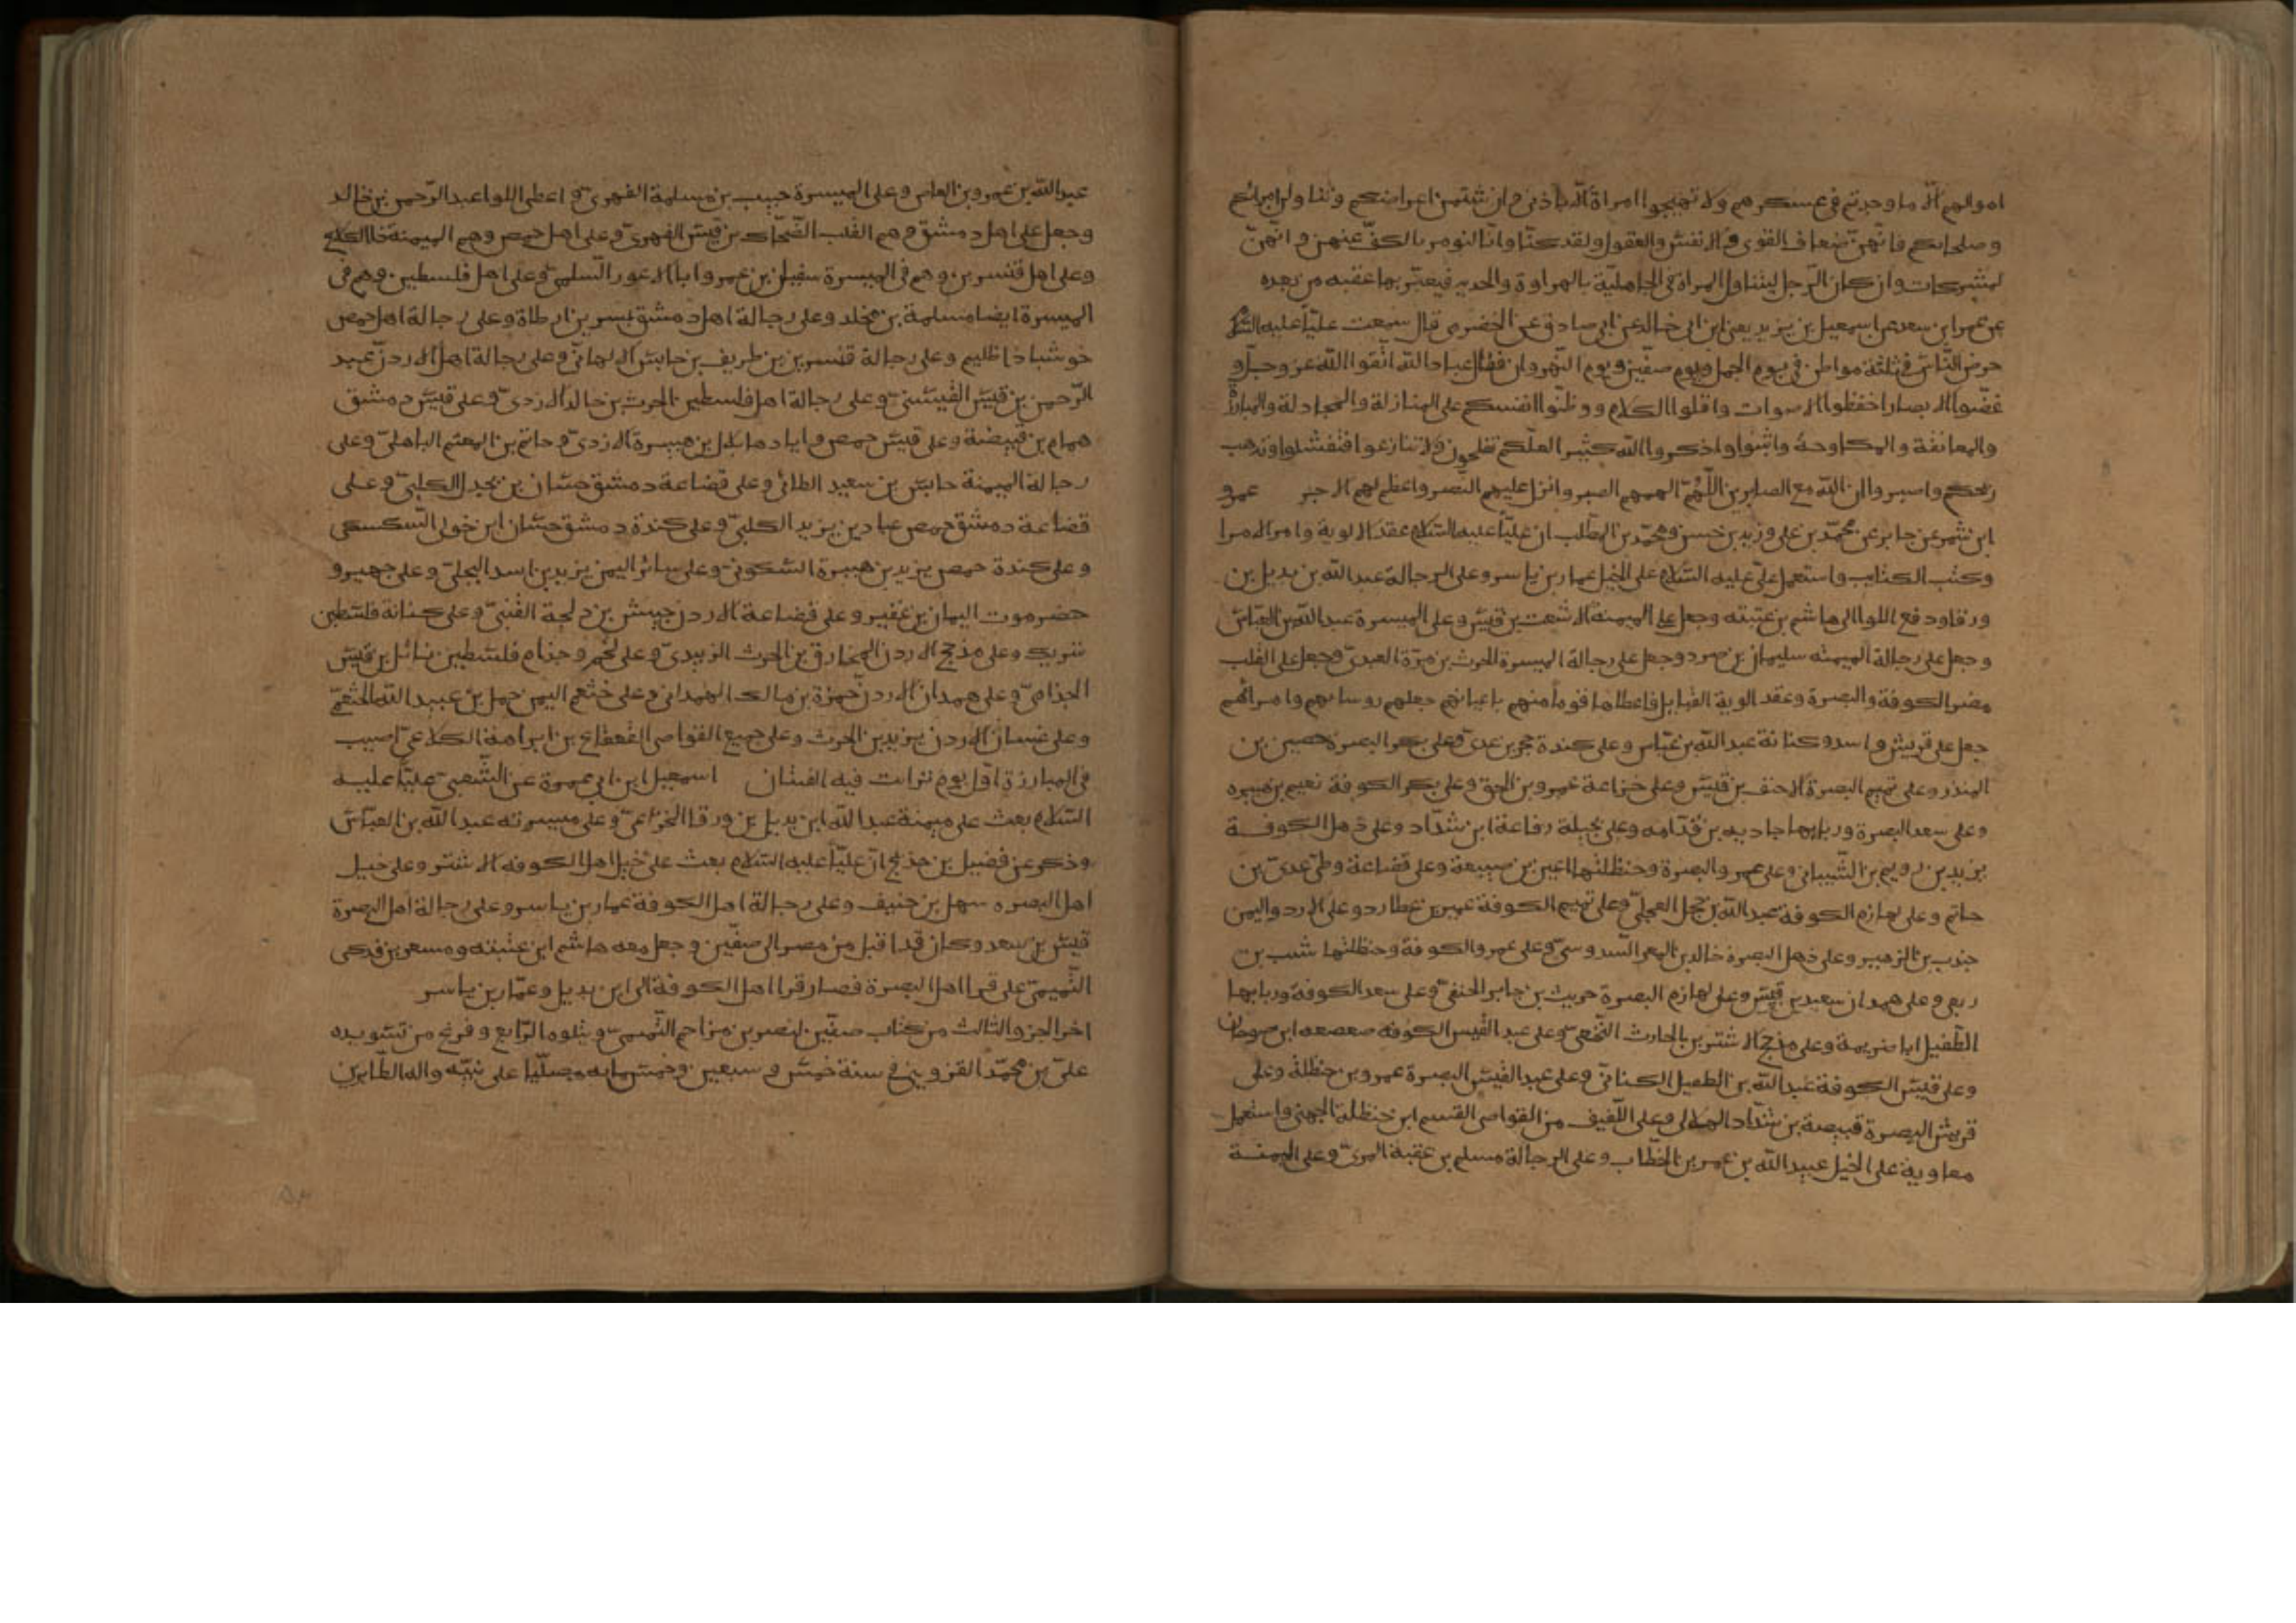 اموالهم الا ما وجدتم في عسكرهم ولا تهيجوا امراة الا باذني وان شتمن اعراضكم وتناولن امرائكم
وصلحائكم فانهن ضعاف القوى والانفس والعقول ولقد كنا وانا لنومر بالكف عنهن وانهن
لمشركات وان كان الرجل ليتناول المراة في الجاهلية بالهراوة والحديد فيعير بها عقبه من بعده
عن عمر ابن سعد عن اسمعيل بن يزيد يعني ابن ابي خالد عن ابي صادق عن الحضرمي قال سمعت عليا عليه السلام
حرض الناس في ثلثة مواطن في يوم الجمل ويوم صفين ويوم النهروان فقال عباد الله اتقوا الله عز وجل و
غضوا الابصار اخفظوا الاصوات واقلوا الكلام ووطنوا انفسكم على المنازلة والمجادلة والمبارزة
والمعانقة والمكاوحة واثبتوا واذكروا الله كثيرا لعلكم تفلحون ولا تنازعوا فتفشلوا وتذهب
ريحكم واصبروا ان الله مع الصابرين اللهم الهمهم الصبر وانزل عليهم النصر واعظم لهم الاجر عمرو
ابن شمر عن جابر عن محمد بن علي وزيد بن حسن ومحمد بن المطلب ان عليا عليه السلام عقد الالوية وامر الامرا
وكتب الكتايب واستعمل علي عليه السلام على الخيل عمار بن ياسر وعلى الرجالة عبد الله بن بديل بن
ورقا ودفع اللوا الى هاشم بن عتبته وجعل على الميمنة الاشعت بن قيس وعلى الميسرة عبد الله بن العباس
وجعل على رجالة الميمنه سليمان بن صرد وجعل على رجالة الميسرة الحرث بن مرة العبدي وجعل على القلب
مضر الكوفة والبصرة وعقد الوية القبايل فاعطاها قوما منهم باعيانهم جعلهم روساهم وامرائهم
جعل على قريش واسد وكنانة عبد الله بن عباس وعلى كندة حجر بن عدي وعلى بكر البصرة حصين بن
المنذر وعلى تميم البصرة الاحنف بن قيس وعلى خزاعة عمرو بن الحمق وعلى بكر الكوفة نعيم بن هبيره
وعلى سعد البصرة وربابها جاديه بن قدامه وعلى بجيلة رفاعة ابن شداد وعلى ذهل الكوفة
يزيد بن رويم بن الشيباني وعلى عمرو البصرة وحنظلتها اعين بن صبيعة وعلى قضاعة وطي عدي بن
حاتم وعلى لهازم الكوفة عبد الله بن حجل العجلي وعلى تميم الكوفة عمير بن عطارد وعلى الازد واليمن
جندب بن الزهير وعلى ذهل البصرة خالد بن المعمر السدوسي وعلى عمرو الكوفة وحنظلتها شبب بن
ربعي وعلى همدان سعيد بن قيس وعلى لهازم البصرة حريث بن جابر الحنفي وعلى سعد الكوفة وربابها
الطفيل ابا صريمة وعلى مذحج الاشتر بن الحارث النخعي وعلى عبد القيس الكوفه صعصعه ابن صوحان
وعلى قيس الكوفة عبد الله بن الطفيل الكناني وعلى عبد القيس البصرة عمرو بن حنظلة وعلى
قريش البصرة قبيصة بن شداد الهلالي وعلى اللفيف من القواصي القسم ابن حنظلة الجهني واستعمل
معاوية على الخيل عبيد الله بن عمر بن الخطاب وعلى الرجالة مسلم بن عقبة المري وعلى الميمنة
عبد الله بن عمرو بن العاص وعلى الميسرة حبيب بن مسلمة الفهري و اعطى اللوا عبد الرحمن بن خالد
وجعل على اهل دمشق وهم القلب الضحاك بن قيس الفهري وعلى اهل حمص وهم الميمنة ذا الكلاع
وعلى اهل قنسرين وهم في الميسرة سفيل بن عمرو ابا الاعور السلمي وعلى اهل فلسطين وهم في
الميسرة ايضا مسلمة بن مخلد وعلى رجالة اهل دمشق بسر بن ارطاة وعلى رجالة اهل حمص
حوشبا ذا ظليم وعلى رجالة قنسرين بن طريف بن حابس الالهاني وعلى رجالة اهل الاردن عبد
الرحمن بن قيس القيسني وعلى رجالة اهل فلسطين الحرث بن خالد الازدي وعلى قيس دمشق
همام بن قبيضة وعلى قيس حمص واياد هابلال بن هبيرة الازدي وحاتم بن المعتم الباهلي وعلى
رجالة الميمنة حابس بن سعيد الطائي وعلى قضاعة دمشق حسان بن بجدل الكلبي وعلى
قضاعة دمشق حمص عباد بن يزيد الكلبي وعلى كندة دمشق حسان ابن خولي السكسكي
وعلى كندة حمص يزيد بن هبيرة السكوني وعلى سائر اليمن يزيد بن اسد البجلي وعلى جهير و
حضرموت اليمان بن غفير وعلى قضاعة الاردن حبيش بن دلجة القيني وعلى كنانة فلسطين
شريك وعلى مذحج الاردن المخارق بن الحرث الزبيدي وعلى لخم وجذام فلسطين نائل بن قيس
الجذامي وعلى همدان الاردن حمزة بن مالك الهمداني وعلى خثعم اليمن حمل بن عبيد الله الخثعمي
وعلى غسان الاردن يزيد بن الحرث وعلى جميع القواصي القعقاع بن ابراهة الكلاعي اصيب
في المبارزة اول يوم تراءت فيه الفئتان اسمعيل ابن ابي عميرة عن الشعبي عليا عليه
السلام بعث على ميمنة عبد الله ابن بديل بن ورقا الخزاعي وعلى ميسرته عبد الله بن العباس
وذكر عن فضيل بن خذيج ان عليا عليه السلام بعث على خيل اهل الكوفه الاشتر وعلى خيل
اهل البصره سهل بن حنيف وعلى رجالة اهل الكوفة عمار بن ياسر وعلى رجالة اهل البصرة
قيس بن سعد وكان قد اقبل من مصر الى صفين وجعل معه هاشم ابن عتبته ومسعر بن فدكي
التميمي على قرا اهل البصرة فصار قرا اهل الكوفة الى ابن بديل وعمار بن ياسر
اخر الجزو الثالث من كتاب صفين لنصر بن مزاحم التميمي ويتلوه الرابع وفرغ من تسويده
علي بن محمد القزويني في سنة خمس و سبعين وخمس مايه مصليا على نبيه واله الطاهرين